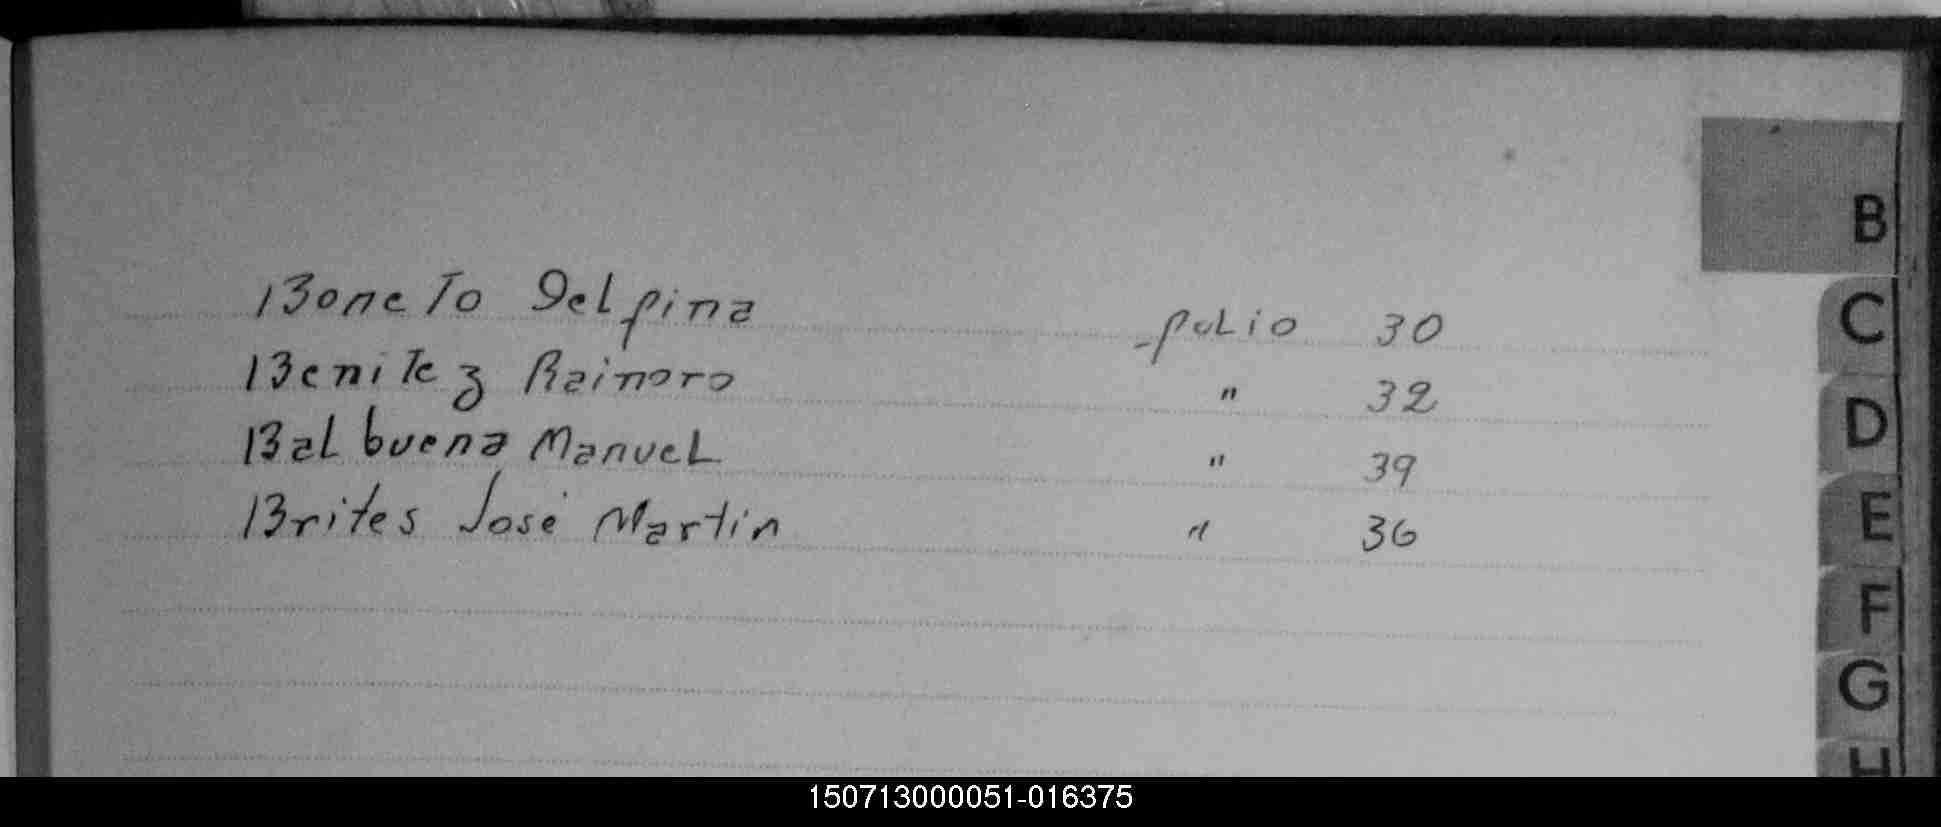 B
Boneto Delfina folio 30
Benitez Rainoro " 32
Balbuena Manuel " 39
Brites José Martin " 36
C
D
E
F
G
H
150713000051-016375